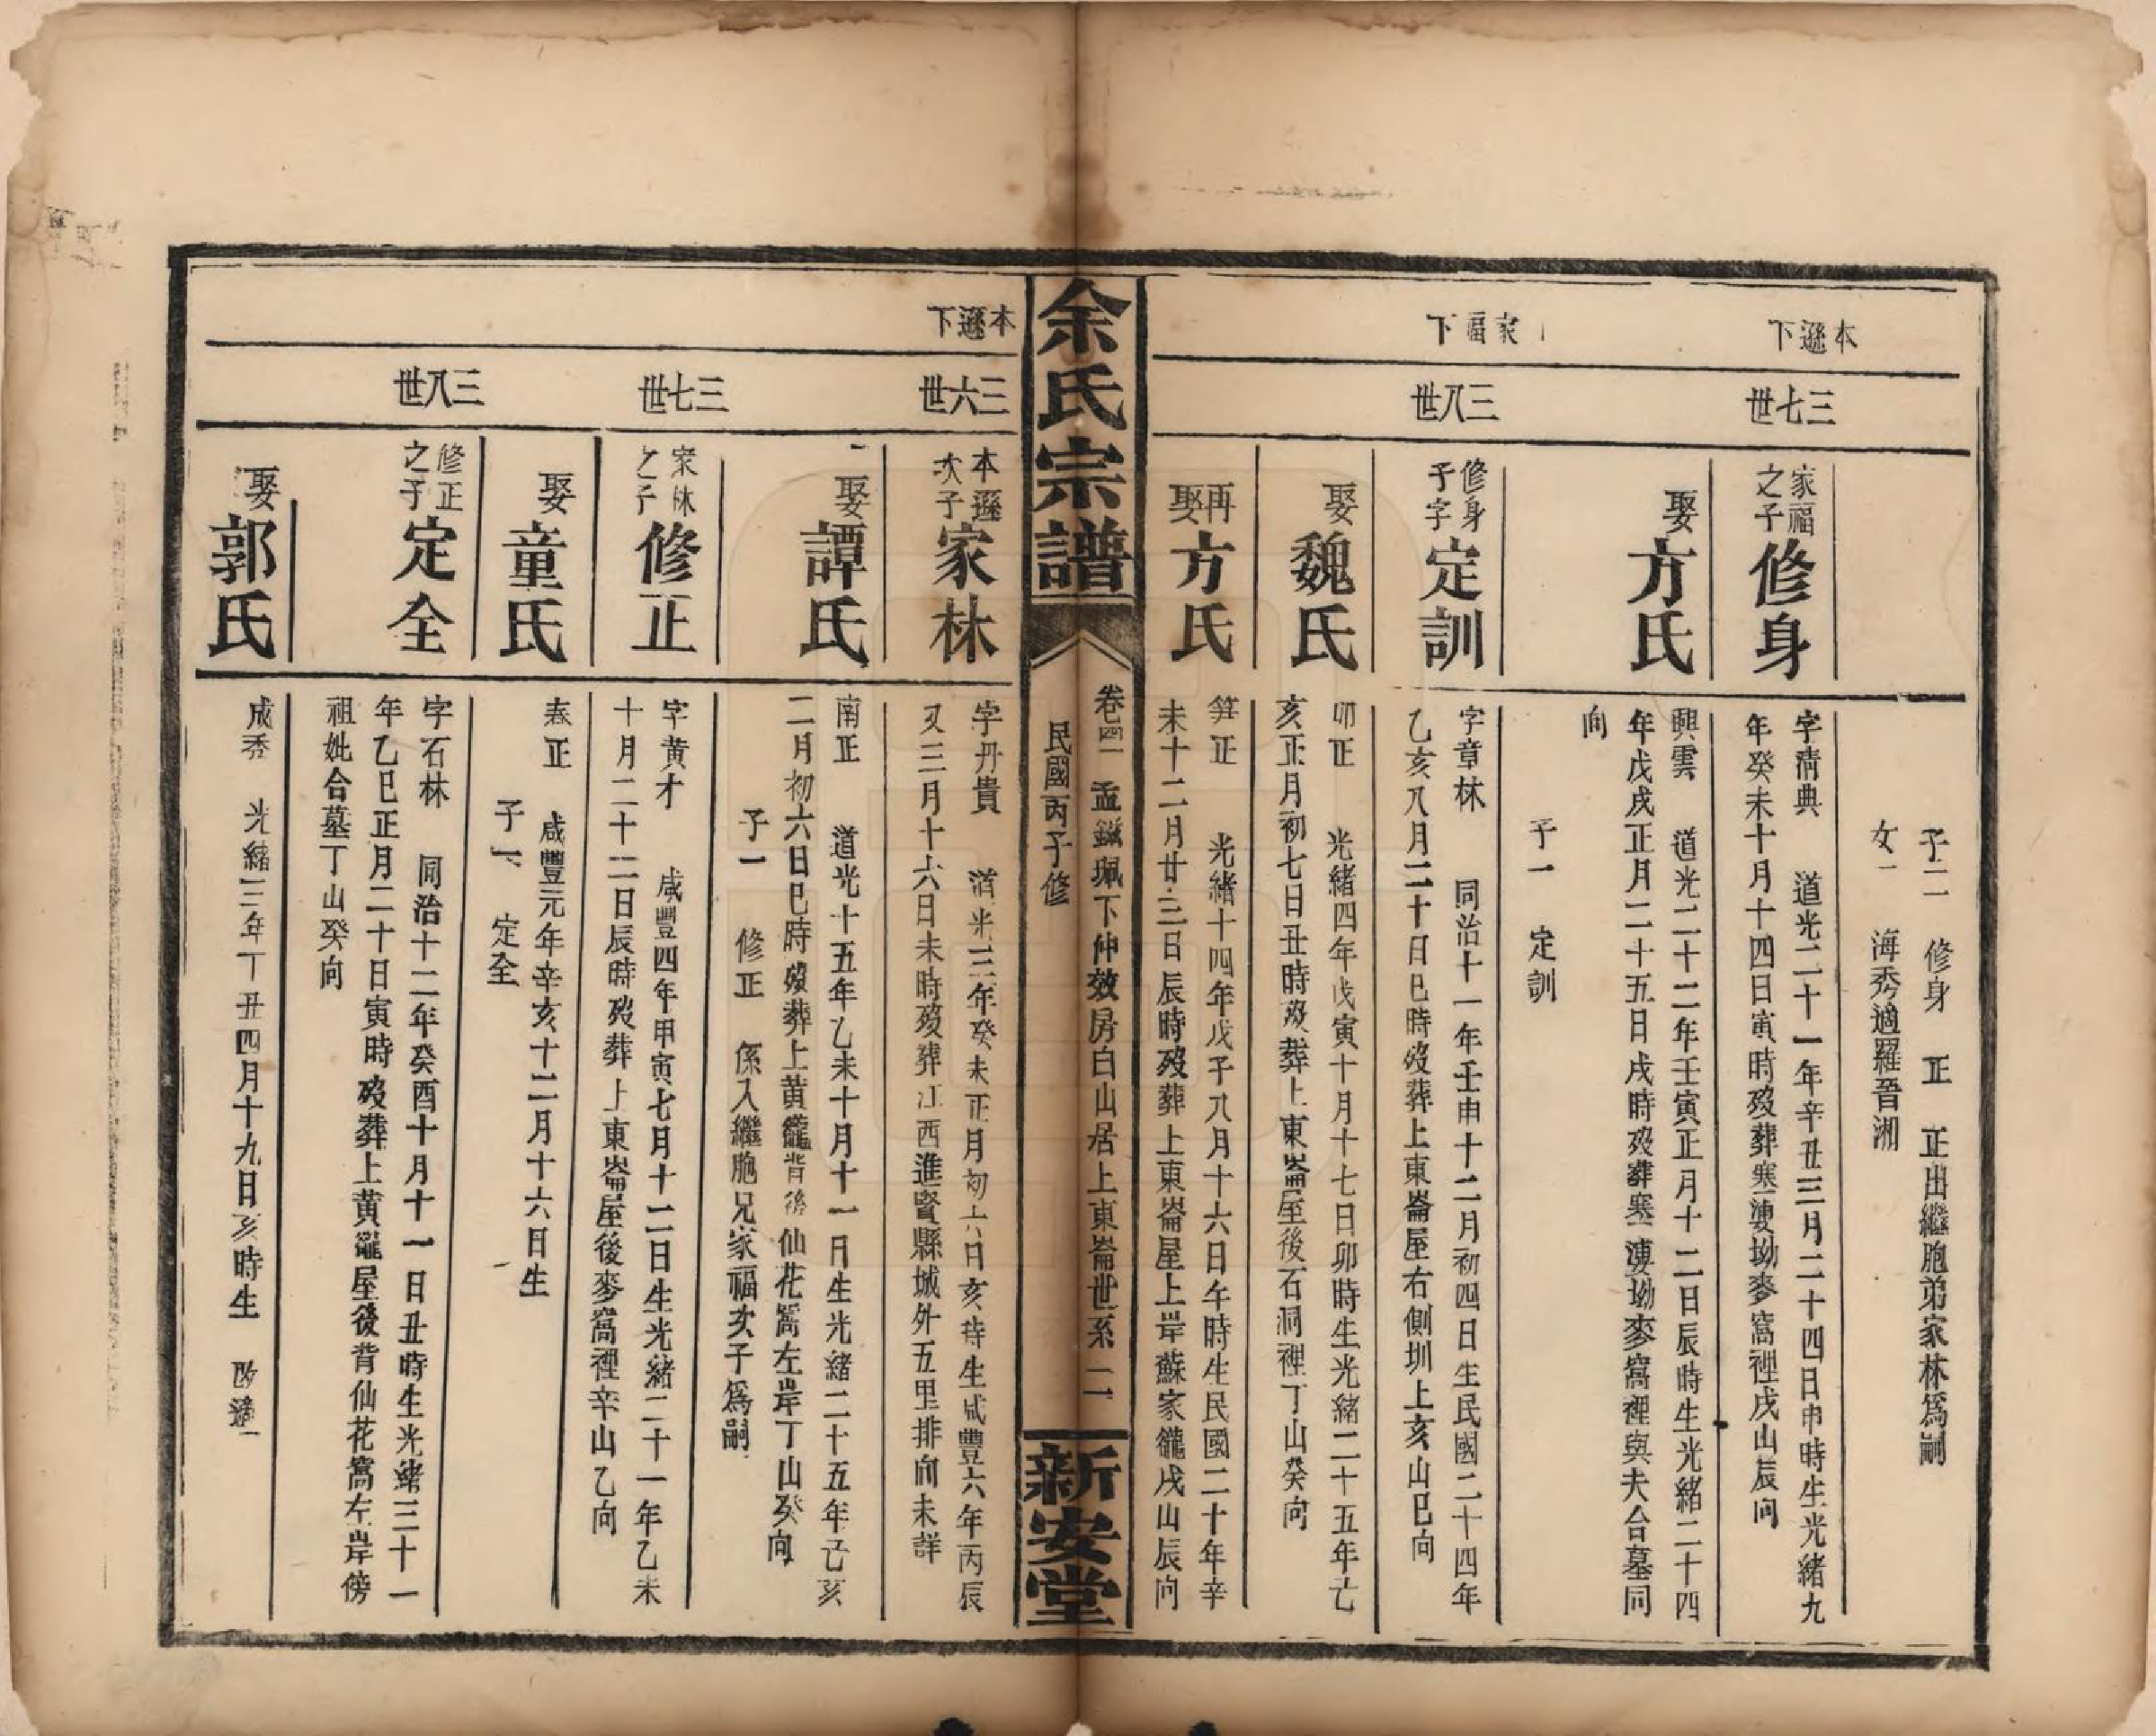 本遜下
三七世
子二 修身 正 正出繼胞弟家林爲嗣
女一 海秀適羅晉湘
家福之子
修身
字清典 道光二十一年辛丑三月二十四日申時生光緒九
年癸未十月十四日寅時歿葬寒婆坳麥窩裡戌山辰向
娶
方氏
興雲 道光二十二年壬寅正月十二日辰時生光緒二十四
年戊戌正月二十五日戌時歿葬寒婆坳麥窩裡與夫合墓同
向
子一 定訓
家福下
三八世
修身子字
定訓
字章林 同治十一年壬申十二月初四日生民國二十四年
乙亥八月二十日巳時歿葬上東崙屋右側圳上亥山巳向
娶
魏氏
卯正 光緒四年戊寅十月十七日卯時生光緒二十五年亡
亥正月初七日丑時歿葬上東崙屋後石洞裡丁山癸向
再娶
方氏
笄正 光緒十四年戊子八月十六日午時生民國二十年辛
未十二月廿三日辰時歿葬上東崙屋上岸蘇家䆲戌山辰向
余氏宗譜
卷四一 孟鎡珮下仲效房白山居上東崙世系 二
民國丙子修
新安堂
本遜下
三六世
本遜次子
家林
字丹貴 道光三年癸未正月初六日亥時生咸豐六年丙辰
又三月十六日未時歿葬江西進賢縣城外五里排向未詳
娶
譚氏
南正 道光十五年乙未十月十一日生光緒二十五年己亥
二月初六日巳時歿葬上黄䆲背後仙花窩左岸丁山癸向
子一 修正 係入繼胞兄家福次子爲嗣
三七世
家林之子
修正
字黄才 咸豐四年甲寅七月十二日生光緒二十一年乙未
十月二十二日辰時歿葬上東崙屋後麥窩裡辛山乙向
娶
童氏
春正 咸豐元年辛亥十二月十六日生
子一 定全
三八世
修正之子
定全
字石林 同治十二年癸酉十月十一日丑時生光緒三十一
年乙巳正月二十日寅時歿葬上黄䆲屋後背仙花窩左岸傍
祖妣合墓丁山癸向
娶
郭氏
成秀 光緒三年丁丑四月十九日亥時生 改適